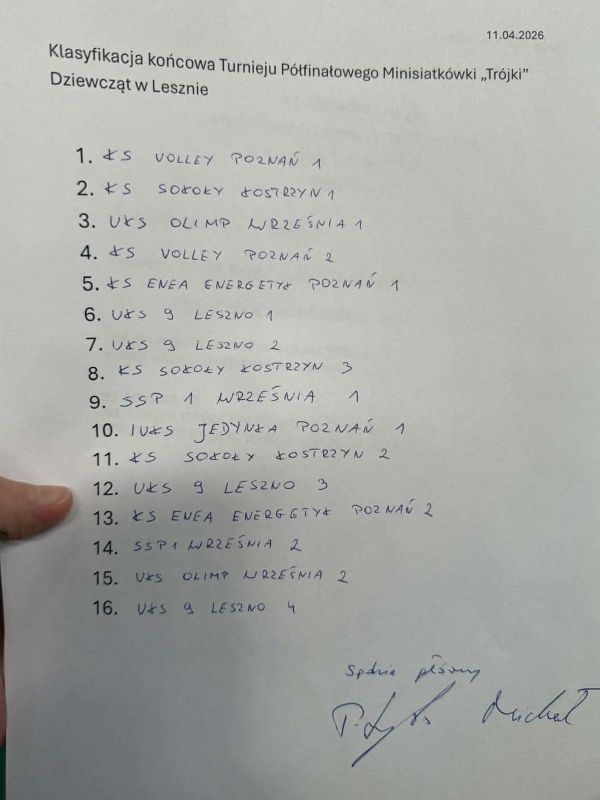 11.04.2026
Klasyfikacja końcowa Turnieju Półfinałowego Minisiatkówki „Trójki”
Dziewcząt w Lesznie
1. KS VOLLEY POZNAŃ 1
2. KS SOKOŁY KOSTRZYN 1
3. UKS OLIMP WRZEŚNIA 1
4. KS VOLLEY POZNAŃ 2
5. KS ENEA ENERGETYK POZNAŃ 1
6. UKS 9 LESZNO 1
7. UKS 9 LESZNO 2
8. KS SOKOŁY KOSTRZYN 3
9. SSP 1 WRZEŚNIA 1
10. IUKS JEDYNKA POZNAŃ 1
11. KS SOKOŁY KOSTRZYN 2
12. UKS 9 LESZNO 3
13. KS ENEA ENERGETYK POZNAŃ 2
14. SSP1 WRZEŚNIA 2
15. UKS OLIMP WRZEŚNIA 2
16. UKS 9 LESZNO 4
Sędzia główny
Michał